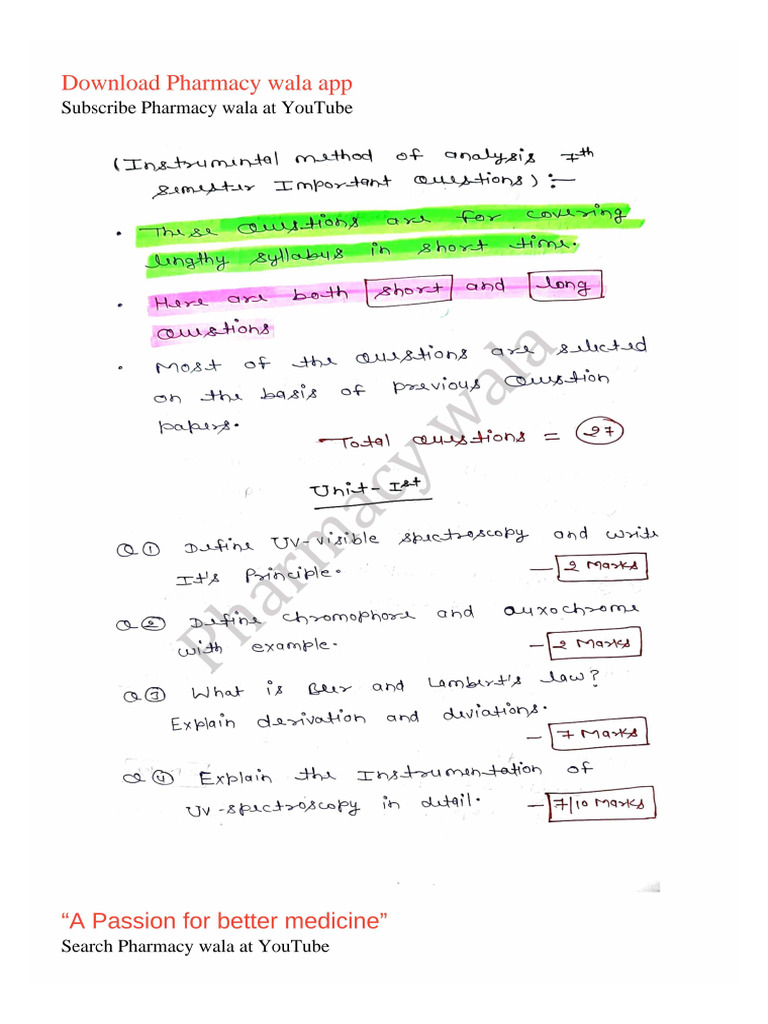 Download Pharmacy wala app
Subscribe Pharmacy wala at YouTube
(Instrumental method of analysis 7th
semester Important Questions) :-
• These Questions are for covering
lengthy syllabus in short time.
• Here are both short and long
Questions
• Most of the Questions are selected
on the basis of previous Question
papers.
Total Questions = 27
Unit-Ist
Q1 Define UV-visible spectroscopy and write
It's Principle. — 2 Marks
Q2 Define chromophore and auxochrome
with example. — 2 Marks
Q3 What is Beer and Lambert's law?
Explain derivation and deviations.
— 7 Marks
Q4 Explain the Instrumentation of
UV-spectroscopy in detail. — 7/10 Marks
Pharmacy wala
“A Passion for better medicine”
Search Pharmacy wala at YouTube